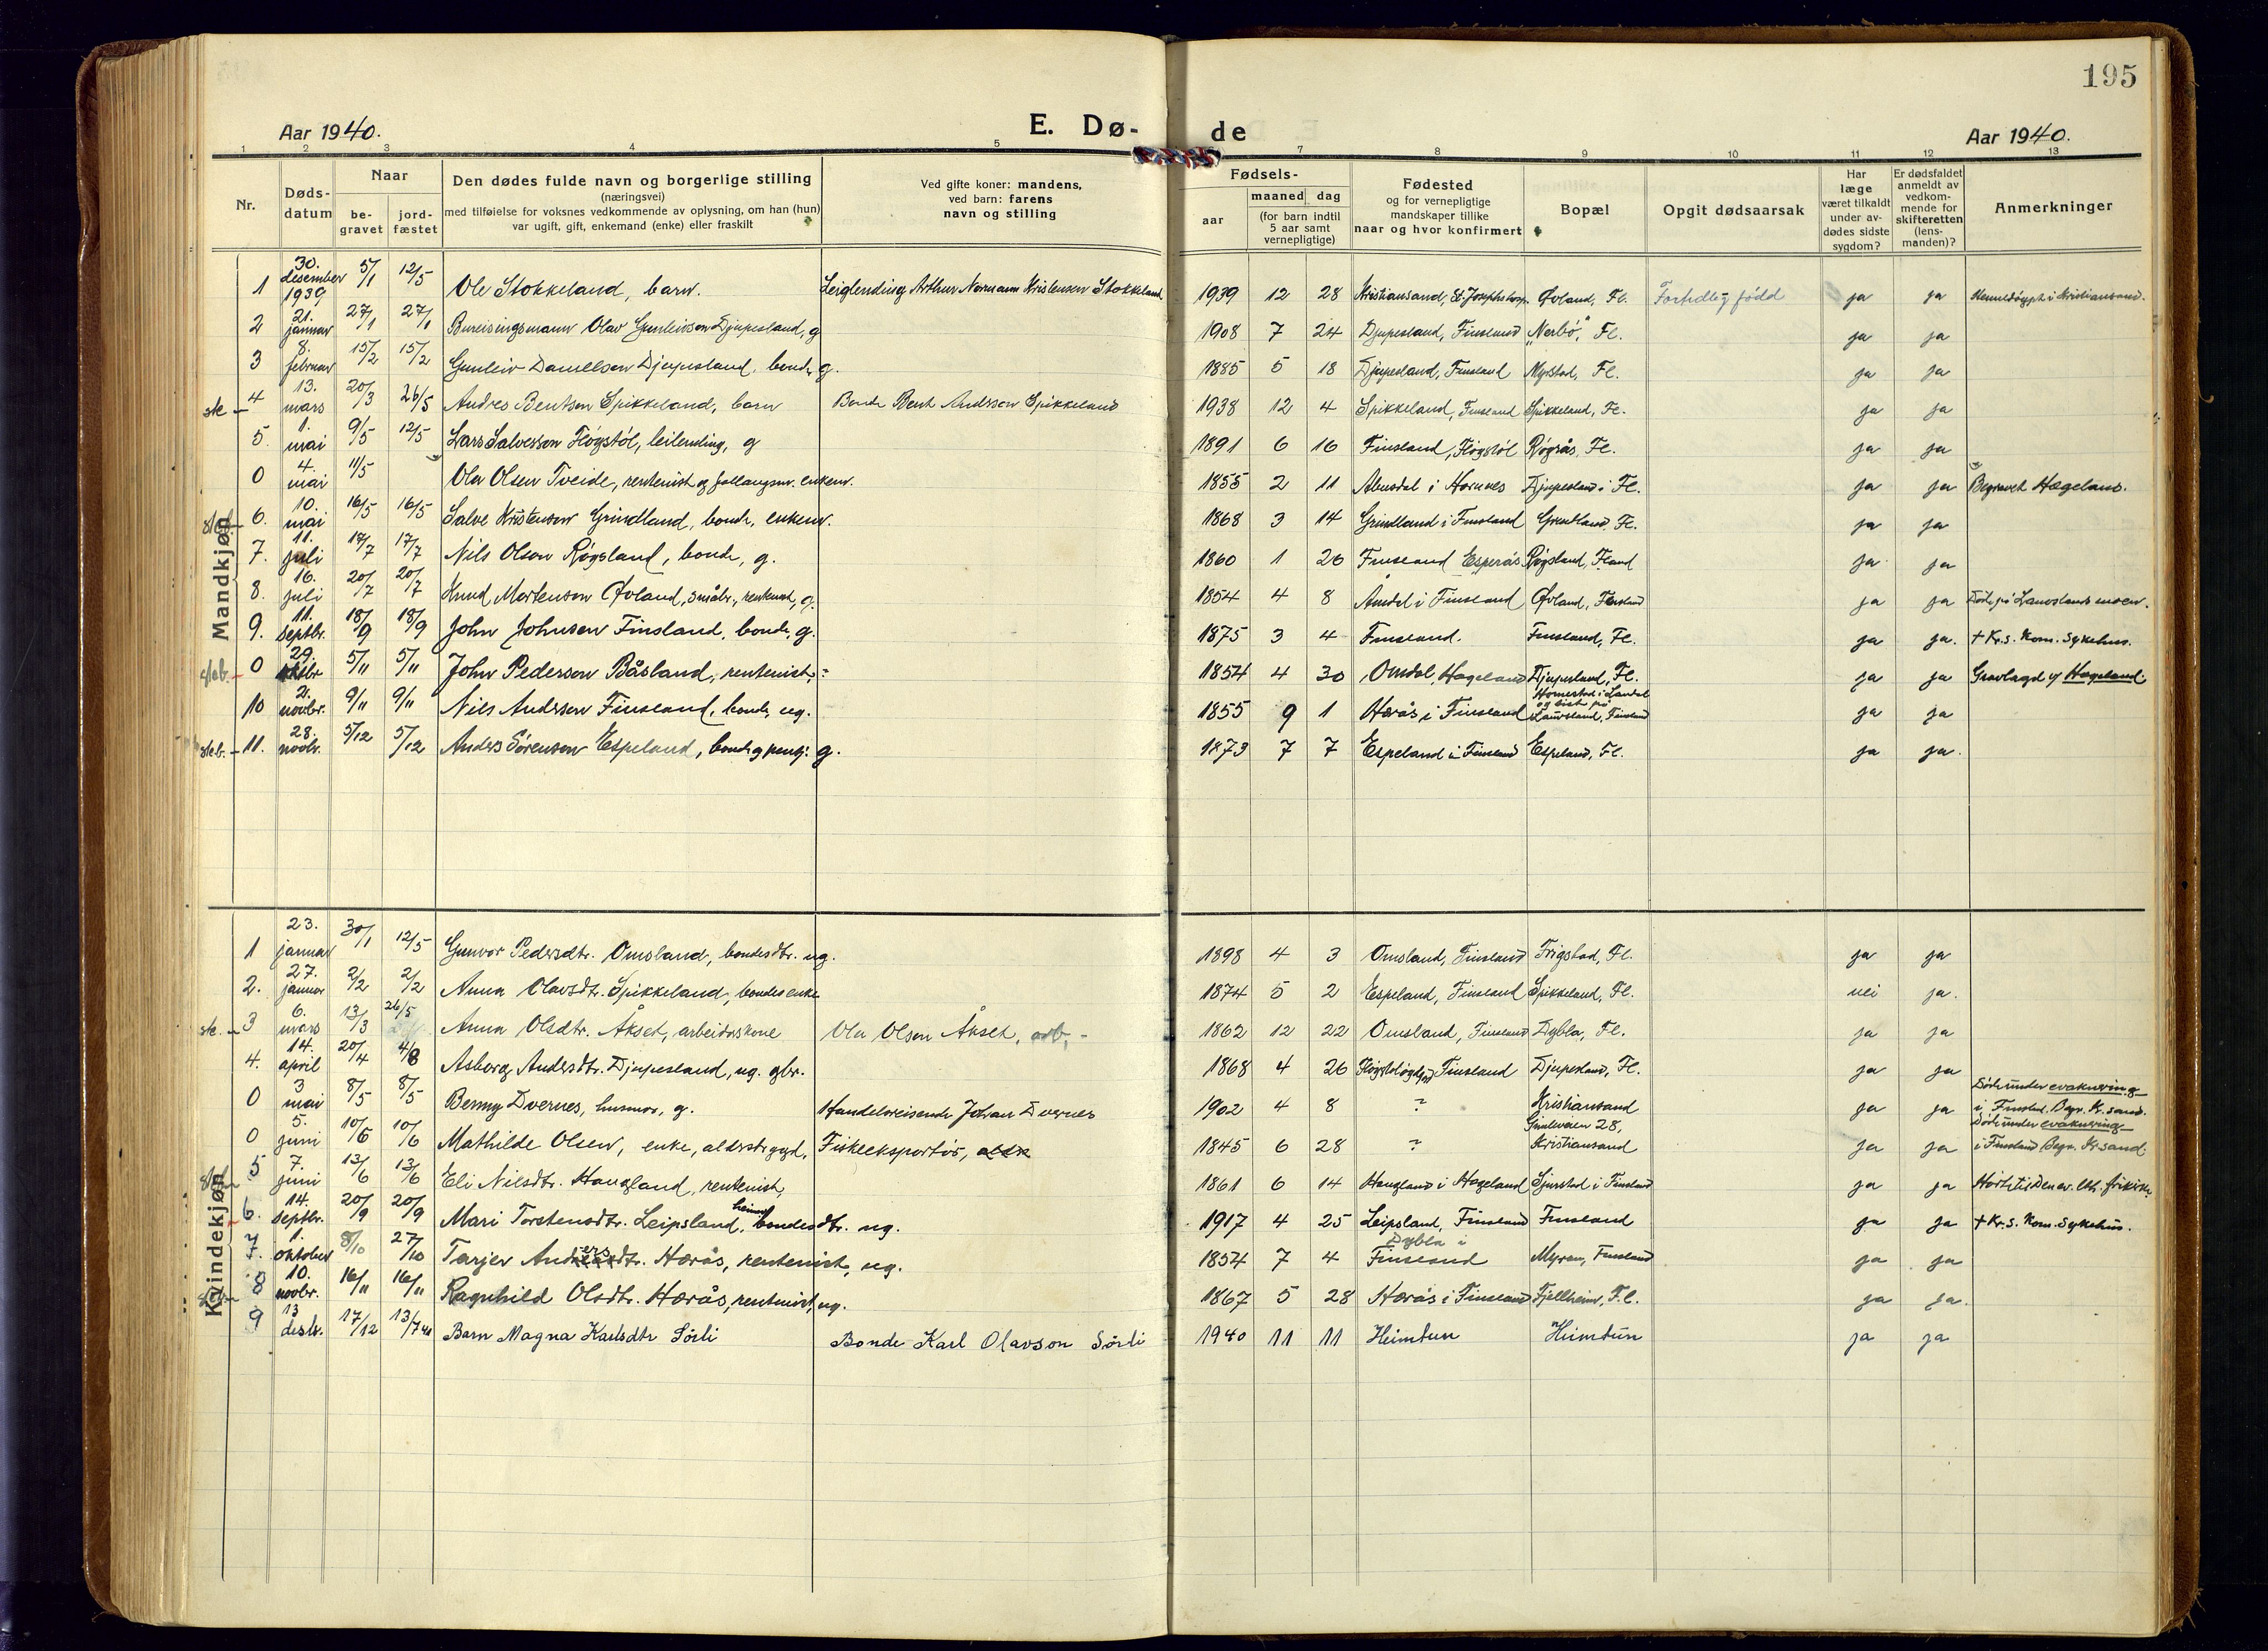 195
Aar 1940.
E. Dø-
de
Aar 1940.
1 2 3 4 5 7 8 9 10 11 12 13
Nr.
Døds-
datum
Naar
be-
gravet
jord-
fæstet
Den dødes fulde navn og borgerlige stilling
(næringsvei)
med tilføielse for voksnes vedkommende av oplysning, om han (hun)
var ugift, gift, enkemand (enke) eller fraskilt
Ved gifte koner: mandens,
ved barn: farens
navn og stilling
Fødsels-
aar
maaned dag
(for barn indtil
5 aar samt
vernepligtige)
Fødested
og for vernepligtige
mandskaper tillike
naar og hvor konfirmert
Bopæl
Opgit dødsaarsak
Har
læge
været tilkaldt
under av-
dødes sidste
sygdom?
Er dødsfaldet
anmeldt av
vedkom-
mende for
skifteretten
(lens-
manden)?
Anmerkninger
Mandkjøn
1 30. desember 1939 5/1 12/5 Ole Stokkeland, barn. Leiglending Arthur Normann Kristensen Stokkeland 1939 12 28 Kristiansand, St. Josephs Øvland, Fl. Fortidlig född ja ja Hemedöypt i Kristiansand.
2 21. januar 27/1 27/1 Bureisingsmann Olav Gunleivson Djupesland, g 1908 7 24 Djupesland, Finsland "Nerbö", Fl. ja ja
3 8. februar 15/2 15/2 Gunleiv Danellson Djupesland, bonde, g. 1885 5 18 Djupesland, Finsland Myrstad, Fl. ja ja
ste - 4 13. mars 20/3 26/5 Andres Bentson Spikkeland, barn Bonde Bent Andersson Spikkeland 1938 12 4 Spikkeland, Finsland Spikkeland, Fl. ja ja
5. 1. mai 9/5 12/5 Lars Salvesson Fløgstøl, leilending, g 1891 6 16 Finsland, Fløgstøl Røgrås, Fl. ja ja
0 4. mai 11/5 Ola Olsen Tveide, rentenist og enkem. 1855 2 11 Abusdal i Hornnes Djupesland i Fl. ja ja Begravet Hægeland.
6. 10. mai 16/5 16/5 Salve Kristenson Grindland, bonde, enkem. 1868 3 14 Grindland i Finsland Grindland, Fl. ja ja
7. 11. juli 17/7 17/7 Nils Olson Røgsland, bonde, g. 1860 1 26 Finsland Esperås Røgsland, F.land ja ja
8. 16. juli 20/7 20/7 Knud Mortenson Øvland, småbr., rentenist, g. 1854 4 8 Åmdal i Finsland Øvland, Finsland ja ja Döde på Lauvslandsmoen.
9. 11. septbr. 18/9 18/9 John Johnsen Finsland, bonde, g. 1875 3 4 Finsland. Finsland, Fl. ja ja. + Kr.s. Kom. Sykehus.
0 29. oktbr 5/11 5/11 John Pederson Båsland, rentenist, 1854 4 30 Omdal, Hægeland Djupesland, Fl. ja ja Gravlagd y Hægeland.
10 2. novbr. 9/11 9/11 Nils Anderson Finsland, bonde, ug. 1855 9 1 Hærås i Finsland Homestad i Landal og sist på Lauvsland, Finsland ja ja
11. 28. novbr. 5/12 5/12 Anders Sörenson Espeland, bonde g 1873 7 7 Espeland i Finsland Espeland, Fl. ja ja.
Kvindekjøn
1 23. januar 30/1 12/5 Gunvor Pedersdtr. Omsland, bondesdtr. ug. 1898 4 3 Omsland, Finsland Frigstad, Fl. ja ja
2. 27. januar 2/2 2/2 Anna Olavsdtr. Spikkeland, bondes enke 1874 5 2 Espeland, Finsland Spikkeland, Fl. nei ja.
ste. - 3 6. mars 13/3 26/5 Anna Olsdtr. Åkset, arbeiderskone Ola Olson Åkset, arb. 1862 12 22 Omsland, Finsland Dybla, Fl. ja ja
4. 14. april 20/4 4/8 Asborg Andersdtr. Djupesland, ug. gbr. 1868 4 26 Finsland Djupesland, Fl. ja ja
0 3 mai 8/5 8/5 Benny Dvernes, husmor, g. Handelsreisende Johan Dvernes 1902 4 8 ? Kristiansand ja ja Döde under evakuering i Finsland. Begr. Kr.sand.
0 5. juni 10/6 10/6 Mathilde Olsen, enke, alderstrygd, Fiskeeksportör, 1845 6 28 ? Gimleveien 28, Kristiansand ja ja Döde under evakuering i Finsland Begr. Kr.sand.
5 7. juni 13/6 13/6 Eli Nilsdtr. Haugland, rentenist, 1861 6 14 Haugland i Hægeland Sjurstad i Finsland ja ja Hört til Den ev. luth. frikirke
6. 14. septbr. 20/9 20/9 Mari Torstensdtr. Leipsland, bondesdtr. ug. 1917 4 25 Leipsland, Finsland Finsland ja ja + Kr.s. Kom. Sykehus.
7. 1. oktober 8/10 27/10 Tarjer Andersdtr. Hærås, rentenist, ug. 1854 7 4 Dybla i Finsland Myran, Finsland ja ja
8 10. novbr. 16/11 16/11 Ragnhild Olsdtr. Hærås, rentenist, ug. 1867 5 28 Hærås i Finsland Fjellheim, Fl. ja ja.
9 13 desbr. 17/12 13/7 41 Barn Magna Karlsdtr Sörli Bonde Karl Olavson Sörli 1940 11 11 Heimtun Heimtun ja ja